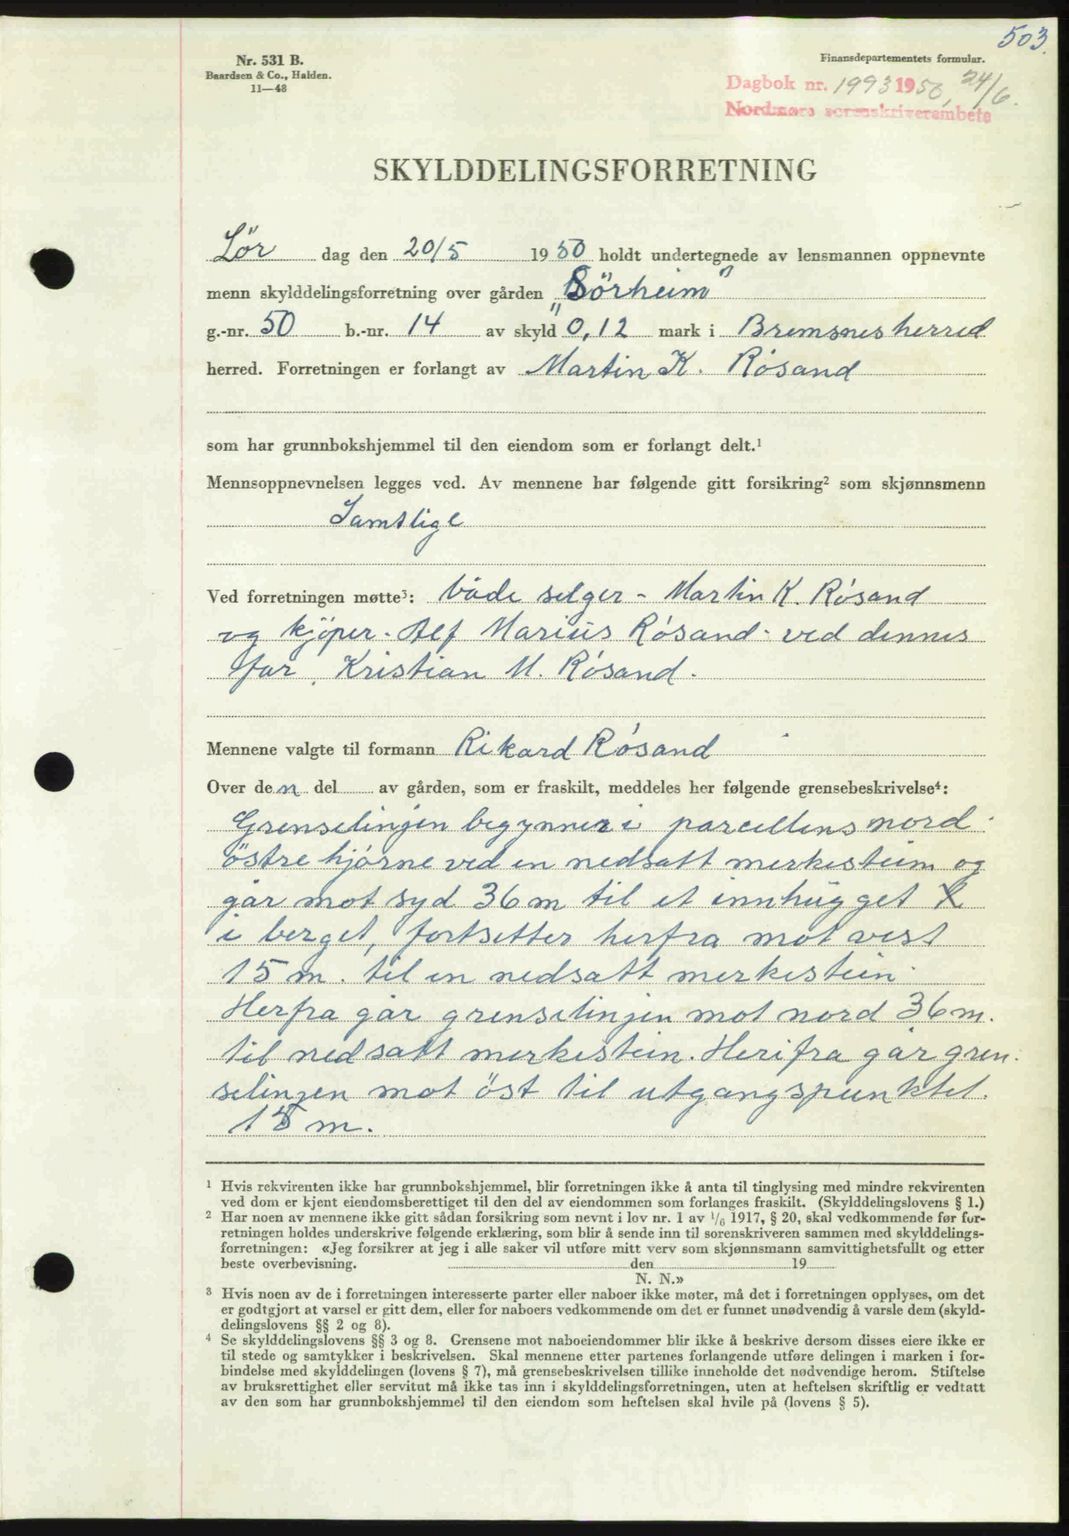 503.
Nr. 531 B.
Baardsen & Co., Halden.
11—48
Finansdepartementets formular.
Dagbok nr. 1993 1950, 24/6.
Nordmøre sorenskriverembete
SKYLDDELINGSFORRETNING
Lør dag den 20/5 1950 holdt undertegnede av lensmannen oppnevnte
menn skylddelingsforretning over gården „Sörheim"
g.-nr. 50 b.-nr. 14 av skyld 0,12 mark i Bremsnes herred
herred. Forretningen er forlangt av Martin K. Røsand
som har grunnbokshjemmel til den eiendom som er forlangt delt.¹
Mennsoppnevnelsen legges ved. Av mennene har følgende gitt forsikring² som skjønnsmenn
Samtlige
Ved forretningen møtte³: både selger - Martin K. Røsand
og kjöper - Alf Marius Røsand - ved dennes
far, Kristian M. Røsand.
Mennene valgte til formann Rikard Røsand
Over den del av gården, som er fraskilt, meddeles her følgende grensebeskrivelse⁴:
Grenselinjen begynner i parcellens nord-
östre hjørne ved en nedsatt merkesteim og
går mot syd 36 m til et innhugget X
i berget, fortsetter herfra mot vest
15 m. til en nedsatt merkestein.
Herfra går grenselinjen mot nord 36 m.
til nedsatt merkestein. Herifra går gren-
selinjen mot öst til utgangspunktet.
15 m.
¹ Hvis rekvirenten ikke har grunnbokshjemmel, blir forretningen ikke å anta til tinglysing med mindre rekvirenten
ved dom er kjent eiendomsberettiget til den del av eiendommen som forlanges fraskilt. (Skylddelingslovens § 1.)
² Har noen av mennene ikke gitt sådan forsikring som nevnt i lov nr. 1 av 1/6 1917, § 20, skal vedkommende før for-
retningen holdes underskrive følgende erklæring, som blir å sende inn til sorenskriveren sammen med skylddelings-
forretningen: «Jeg forsikrer at jeg i alle saker vil utføre mitt verv som skjønnsmann samvittighetsfullt og etter
beste overbevisning. den 19
N. N.»
³ Hvis noen av de i forretningen interesserte parter eller naboer ikke møter, må det i forretningen opplyses, om det
er godtgjort at varsel er gitt dem, eller for naboers vedkommende om det er funnet unødvendig å varsle dem (skyld-
delingslovens §§ 2 og 8).
⁴ Se skylddelingslovens §§ 3 og 8. Grensene mot naboeiendommer blir ikke å beskrive dersom disses eiere ikke er
til stede og samtykker i beskrivelsen. Skal mennene etter partenes forlangende utføre delingen i marken i for-
bindelse med skylddelingen (lovens § 7), må grensebeskrivelsen tillike inneholde det nødvendige herom. Stiftelse
av bruksrettighet eller servitut må ikke tas inn i skylddelingsforretningen, uten at heftelsen skriftlig er vedtatt
av den som har grunnbokshjemmel til den eiendom som heftelsen skal hvile på (lovens § 5).